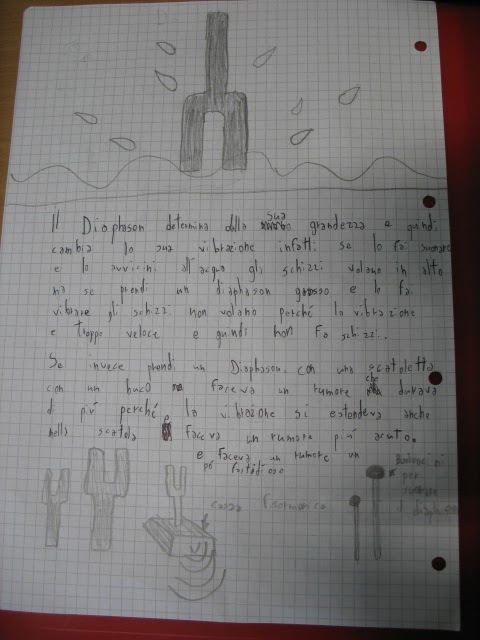 Il Diaphason determina dalla sua grandezza e quindi
cambia la sua vibrazione infatti se lo fai suonare
e lo avvicini all'acqua gli schizzi volano in alto
ma se prendi un diaphason grosso e lo fai
vibrare gli schizzi non volano perché la vibrazione
e troppo veloce e quindi non fa schizzi.
Se invece prendi un Diaphason con una scatoletta
con un buco faceva un rumore che durava
di più perché la vibrazione si estendeva anche
nella scatola faceva un rumore più acuto.
e faceva un rumore un
pò fastidioso
cassa
per
suonare
il